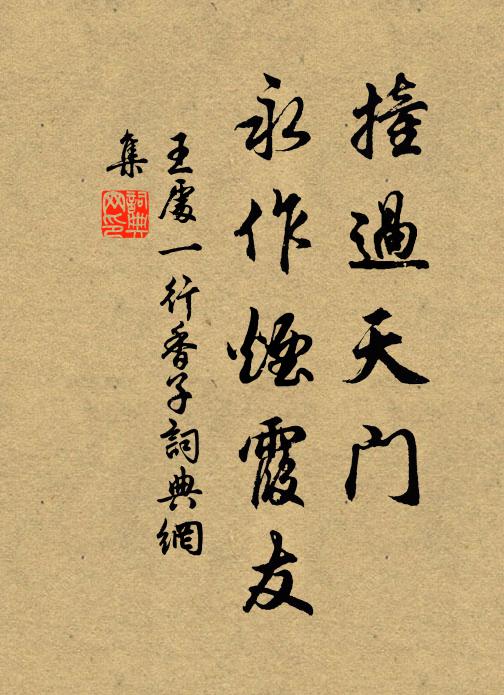 撞過天門
永作煙霞友
王處一行香子詞典網
集
詞典
网印